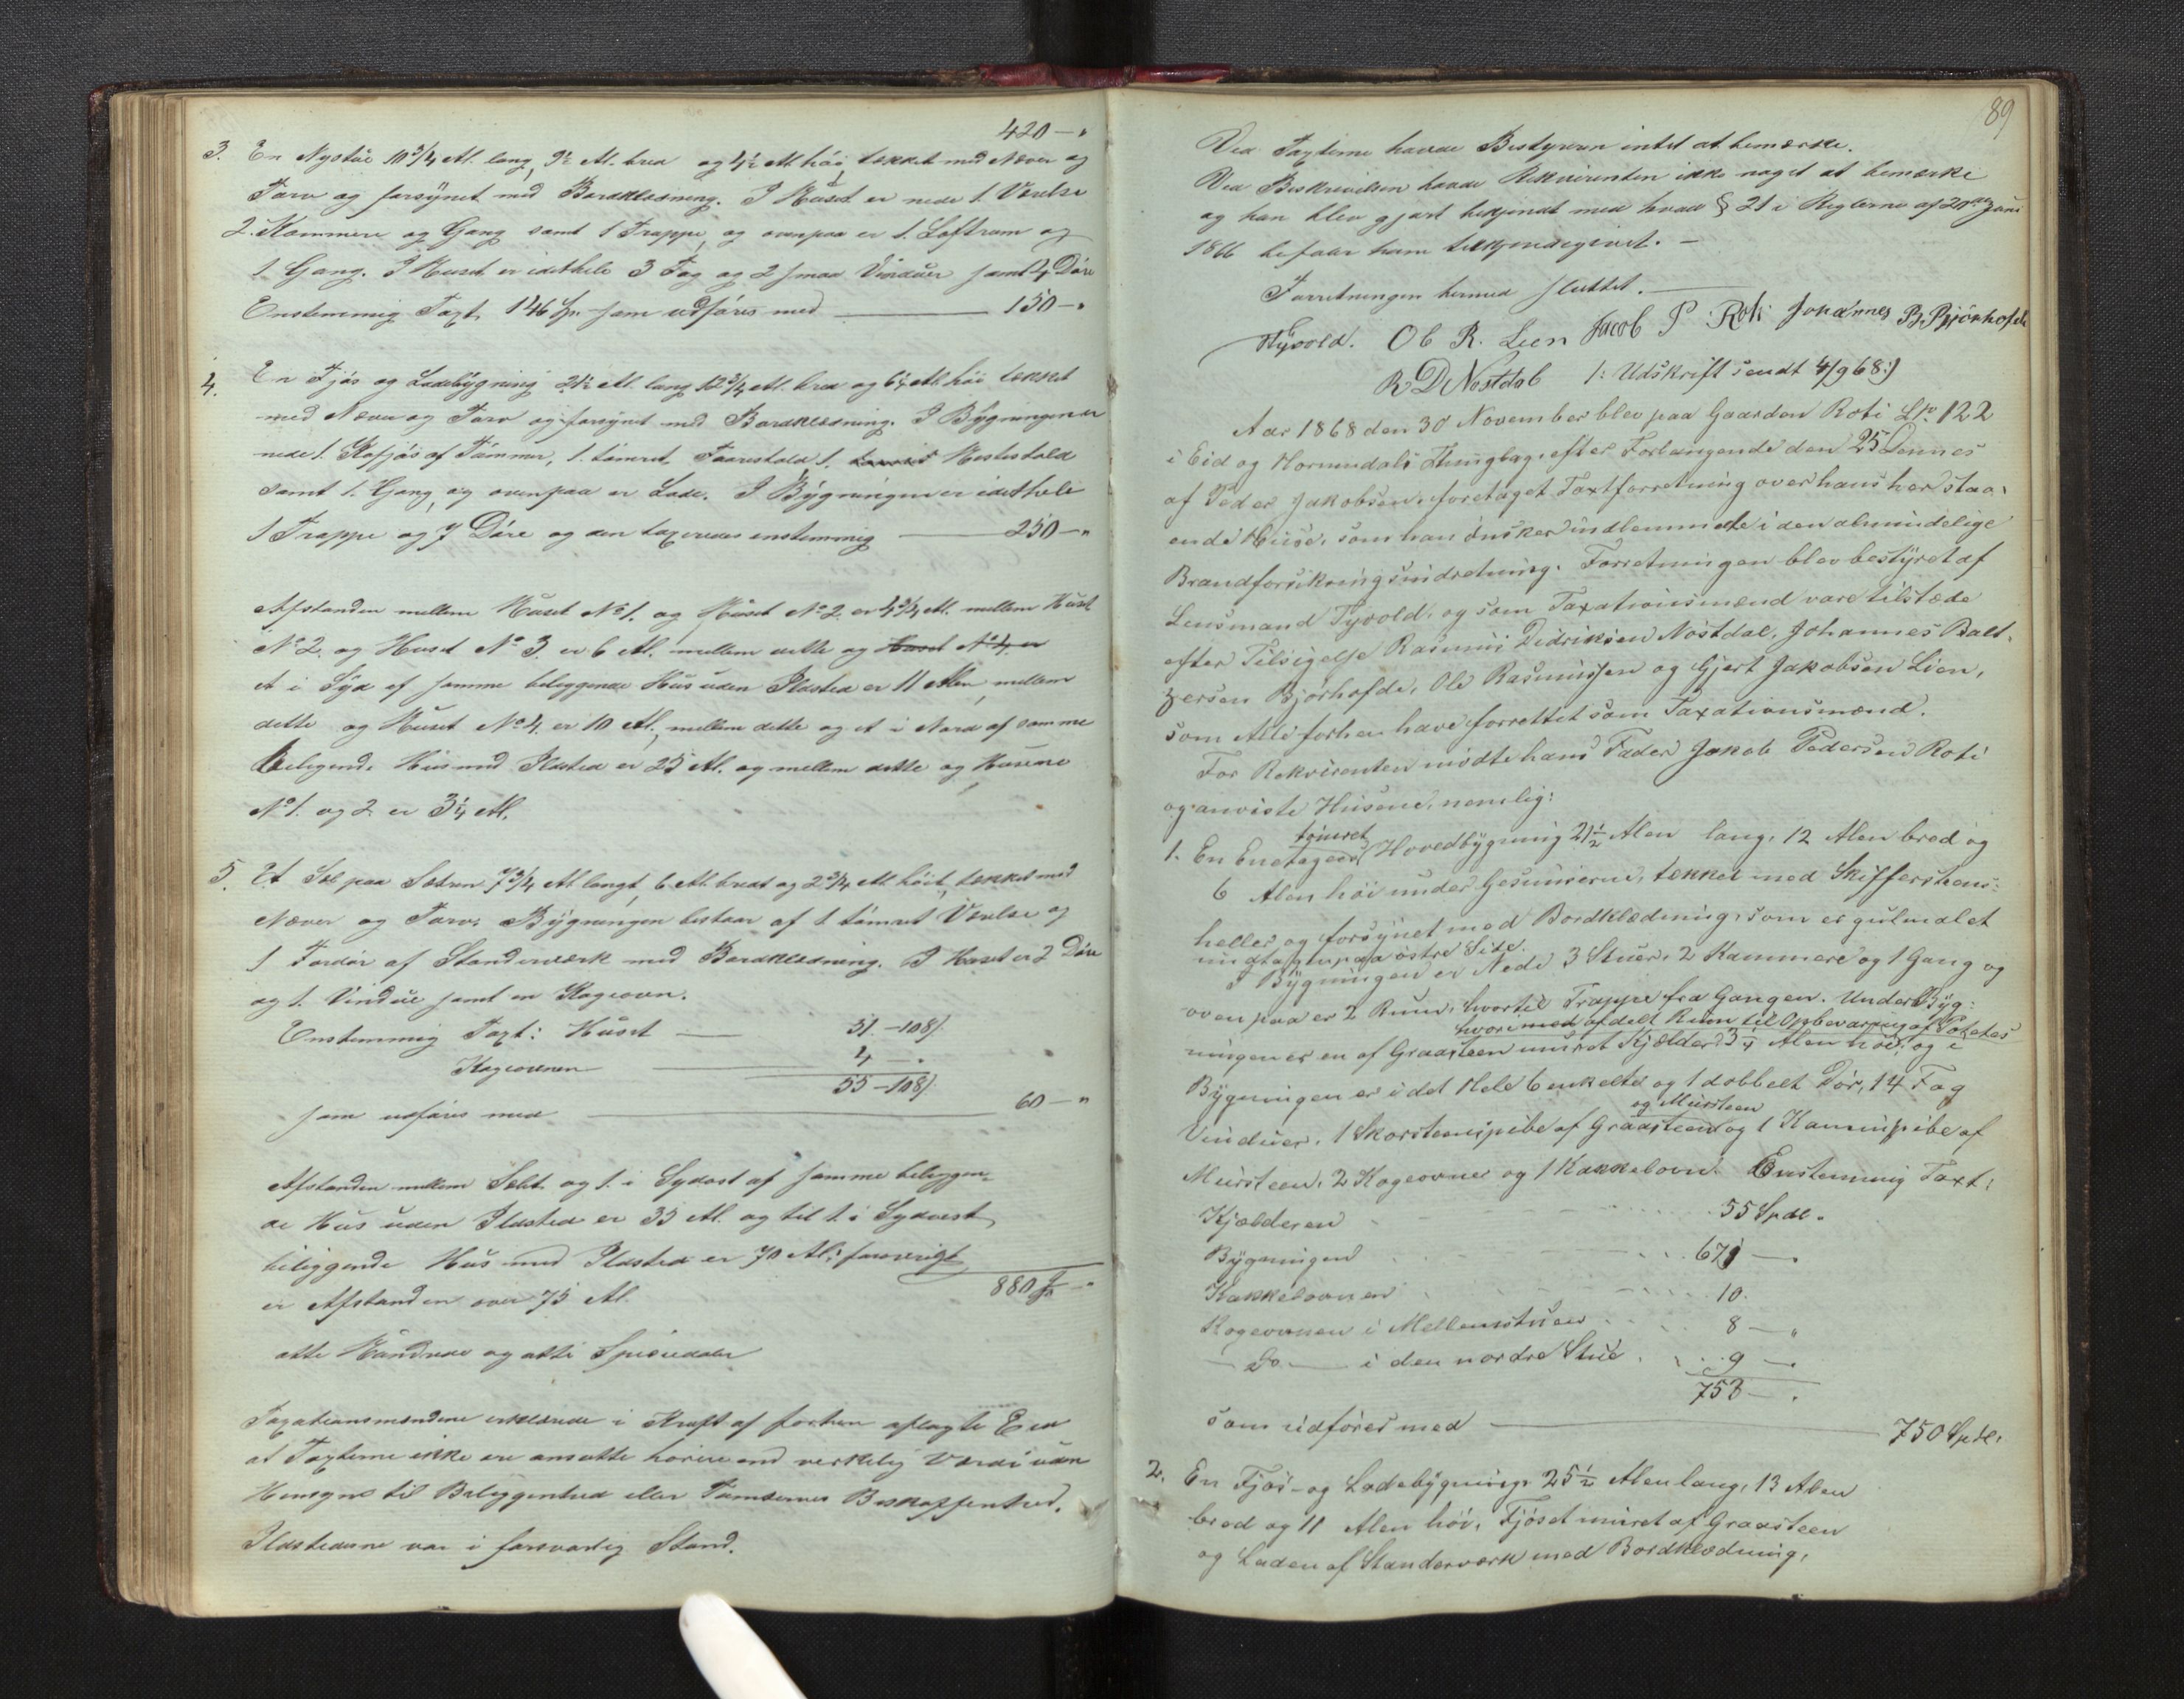 420 — "
3. En Nystue 10 3/4 Al. lang, 9 1/2 Al. bred og 4 1/2 Al. høi, tækket med Næver og
Torv og forsynet med Bordklædning. I Huset er nede 1 Værelse
2. Kammere og Gang samt 1 Trappe, og ovenpaa er 1. Loftrum og
1 Gang. I Huset er idethele 3 Fag og 2 smaa Vinduer samt 4 Døre
Enstemmig Taxt 146 Sp. som udføres med — 150 — "
4. En Fjøs og Ladebygning 21 1/2 Al. lang 12 3/4 Al. bred og 6 1/4 Al. høi tækket
med Næver og Torv og forsynet med Bordklædning. I Bygningen er
nede 1. Kofjøs af Tømmer, 1. tømret Faarestald 1. Hestestald
samt 1. Gang, og ovenpaa er Lade. I Bygningen er idethele
1 Trappe og 7 Døre og den taxeredes enstemmig — 250 — "
Afstanden mellem Huset No 1. og Huset No 2. er 4 3/4 Al. mellem Huset
No 2. og Huset No 3. er 6 Al. mellem dette og Huset No 4. er
et i Syd af samme beliggende Hus uden Ildsted er 11 Alen, mellem
dette og Huset No 4. er 10 Al., mellem dette og et i Nord af samme
beliggende Hus med Ildsted er 25 Al. og mellem dette og Husene
No 1. og 2. er 3 1/4 Al.
5. Et Sel paa Sætren 7 3/4 Al. langt, 6 Al. bredt og 2 3/4 Al. höit, tækket med
Næver og Torv. Bygningen bestaar af 1 tømret Værelse og
1 Fordør af Standerværk med Bordklædning. I Huset er 2 Døre
og 1. Vindue samt en Kogeovn.
Enstemmig Taxt: Huset — 51. — 108 /
Kogeovnen — 4 — "
55 — 108 /
som udføres med — 60 — "
Afstanden mellem Selet og 1. i Sydost af samme beliggen-
de Hus uden Ildsted er 35 Al. og til 1. i Sydvest
beliggende Hus med Ildsted er 70 Al.; forøvrigt
er Afstanden over 75 Al. 880 Sp. — "
otte Hundrede og otti Speciedaler
Taxationsmændene erklærede i Kraft af forhen aflagte Eed
at Taxterne ikke ere ansatte høiere end virkelig Værdi uden
Hensyn til Beliggenhed eller Tomternes Beskaffenhed.
Ildstederne var i forsvarlig Stand.
89
Ved Taxterne havde Bestyreren intet at bemærke.
Ved Beskrivelsen havde Rekvirenten ikke noget at bemærke
og han blev gjort bekjendt med hvad § 21 i Reglerne af 20de Juni
1866 befaler ham tilkjendegivet. —
Forretningen hermed sluttet. —
Tyvold. Ol R. Lien Jacob P Roti Johannes B. Bjørhofde
R D Nostdal /: Udskrift sendt 4/9 68 :/
Aar 1868 den 30 November blev paa Gaarden Roti Lno 122
i Eid og Hornindals Thinglag, efter Forlangende den 25 Dennes
af Peder Jakobsen, foretaget Taxtforretning over hans her staa-
ende Huse, som han ønsker indlemmede i den almindelige
Brandforsikringsindretning. Forretningen blev bestyret af
Lensmand Tyvold, og som Taxationsmænd vare tilstæde
efter Tilsigelse Rasmus Didriksen Nöstdal, Johannes Balt-
zersen Bjørhofde, Ole Rasmussen og Gjert Jakobsen Lien,
som Alle forhen have forrettet som Taxationsmænd.
For Rekvirenten mödte hans Fader Jakob Pedersen Roti
og anviste Husene, nemlig:
tömret
1. En Enetages Hovedbygning 21 1/2 Alen lang, 12 Alen bred og
6 Alen höi under Gesimserne, tækket med Skiffersteens-
heller og forsynet med Bordklædning, som er gulmalet
undtagen paa östre Side.
I Bygningen er Nede 3 Stuer, 2 Kammere og 1 Gang og
ovenpaa er 2 Rum, hvortil Trappe fra Gangen. Under Byg-
hvori med afdelt Rum til Opbevaring af Potetes
ningen er en af Graasteen muret Kjælder 3 1/4 Alen höi, og i
Bygningen er i det Hele 6 enkelte og 1 dobbelt Dör, 14 Fag
og Mursteen
Vinduer, 1 Skorsteenspibe af Graasteen og 1 Kaminpibe af
Mursteen, 2 Kogeovne og 1 Kakkelovn. Enstemmig Taxt:
Kjælderen 55 Spdl.
Bygningen 671 — "
Kakkelovnen 10.
Kogeovnen i Mellemstuen 8 — "
— Do — i den nordre Stue 9 — "
753 — "
som udföres med — 750 Spdl.
2. En Fjøs- og Ladebygning 25 1/2 Alen lang, 13 Alen
bred og 11 Alen höi, Fjöset muret af Graasteen
og Laden af Standerværk med Bordklædning,